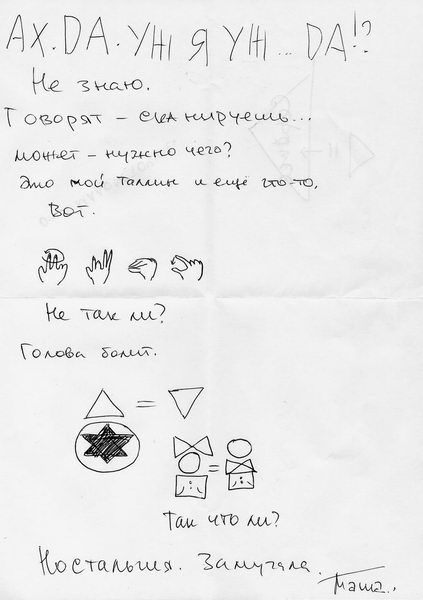 АХ. DА. УЖ Я УЖ... DА!?
Не знаю.
Говорят – сканируешь...
может – нужно чего?
Это мой Таллин и ещё что-то.
Вот.
Не так ли?
Голова болит.
=
=
Так что ли?
Ностальгия. Замучала.
Маша..